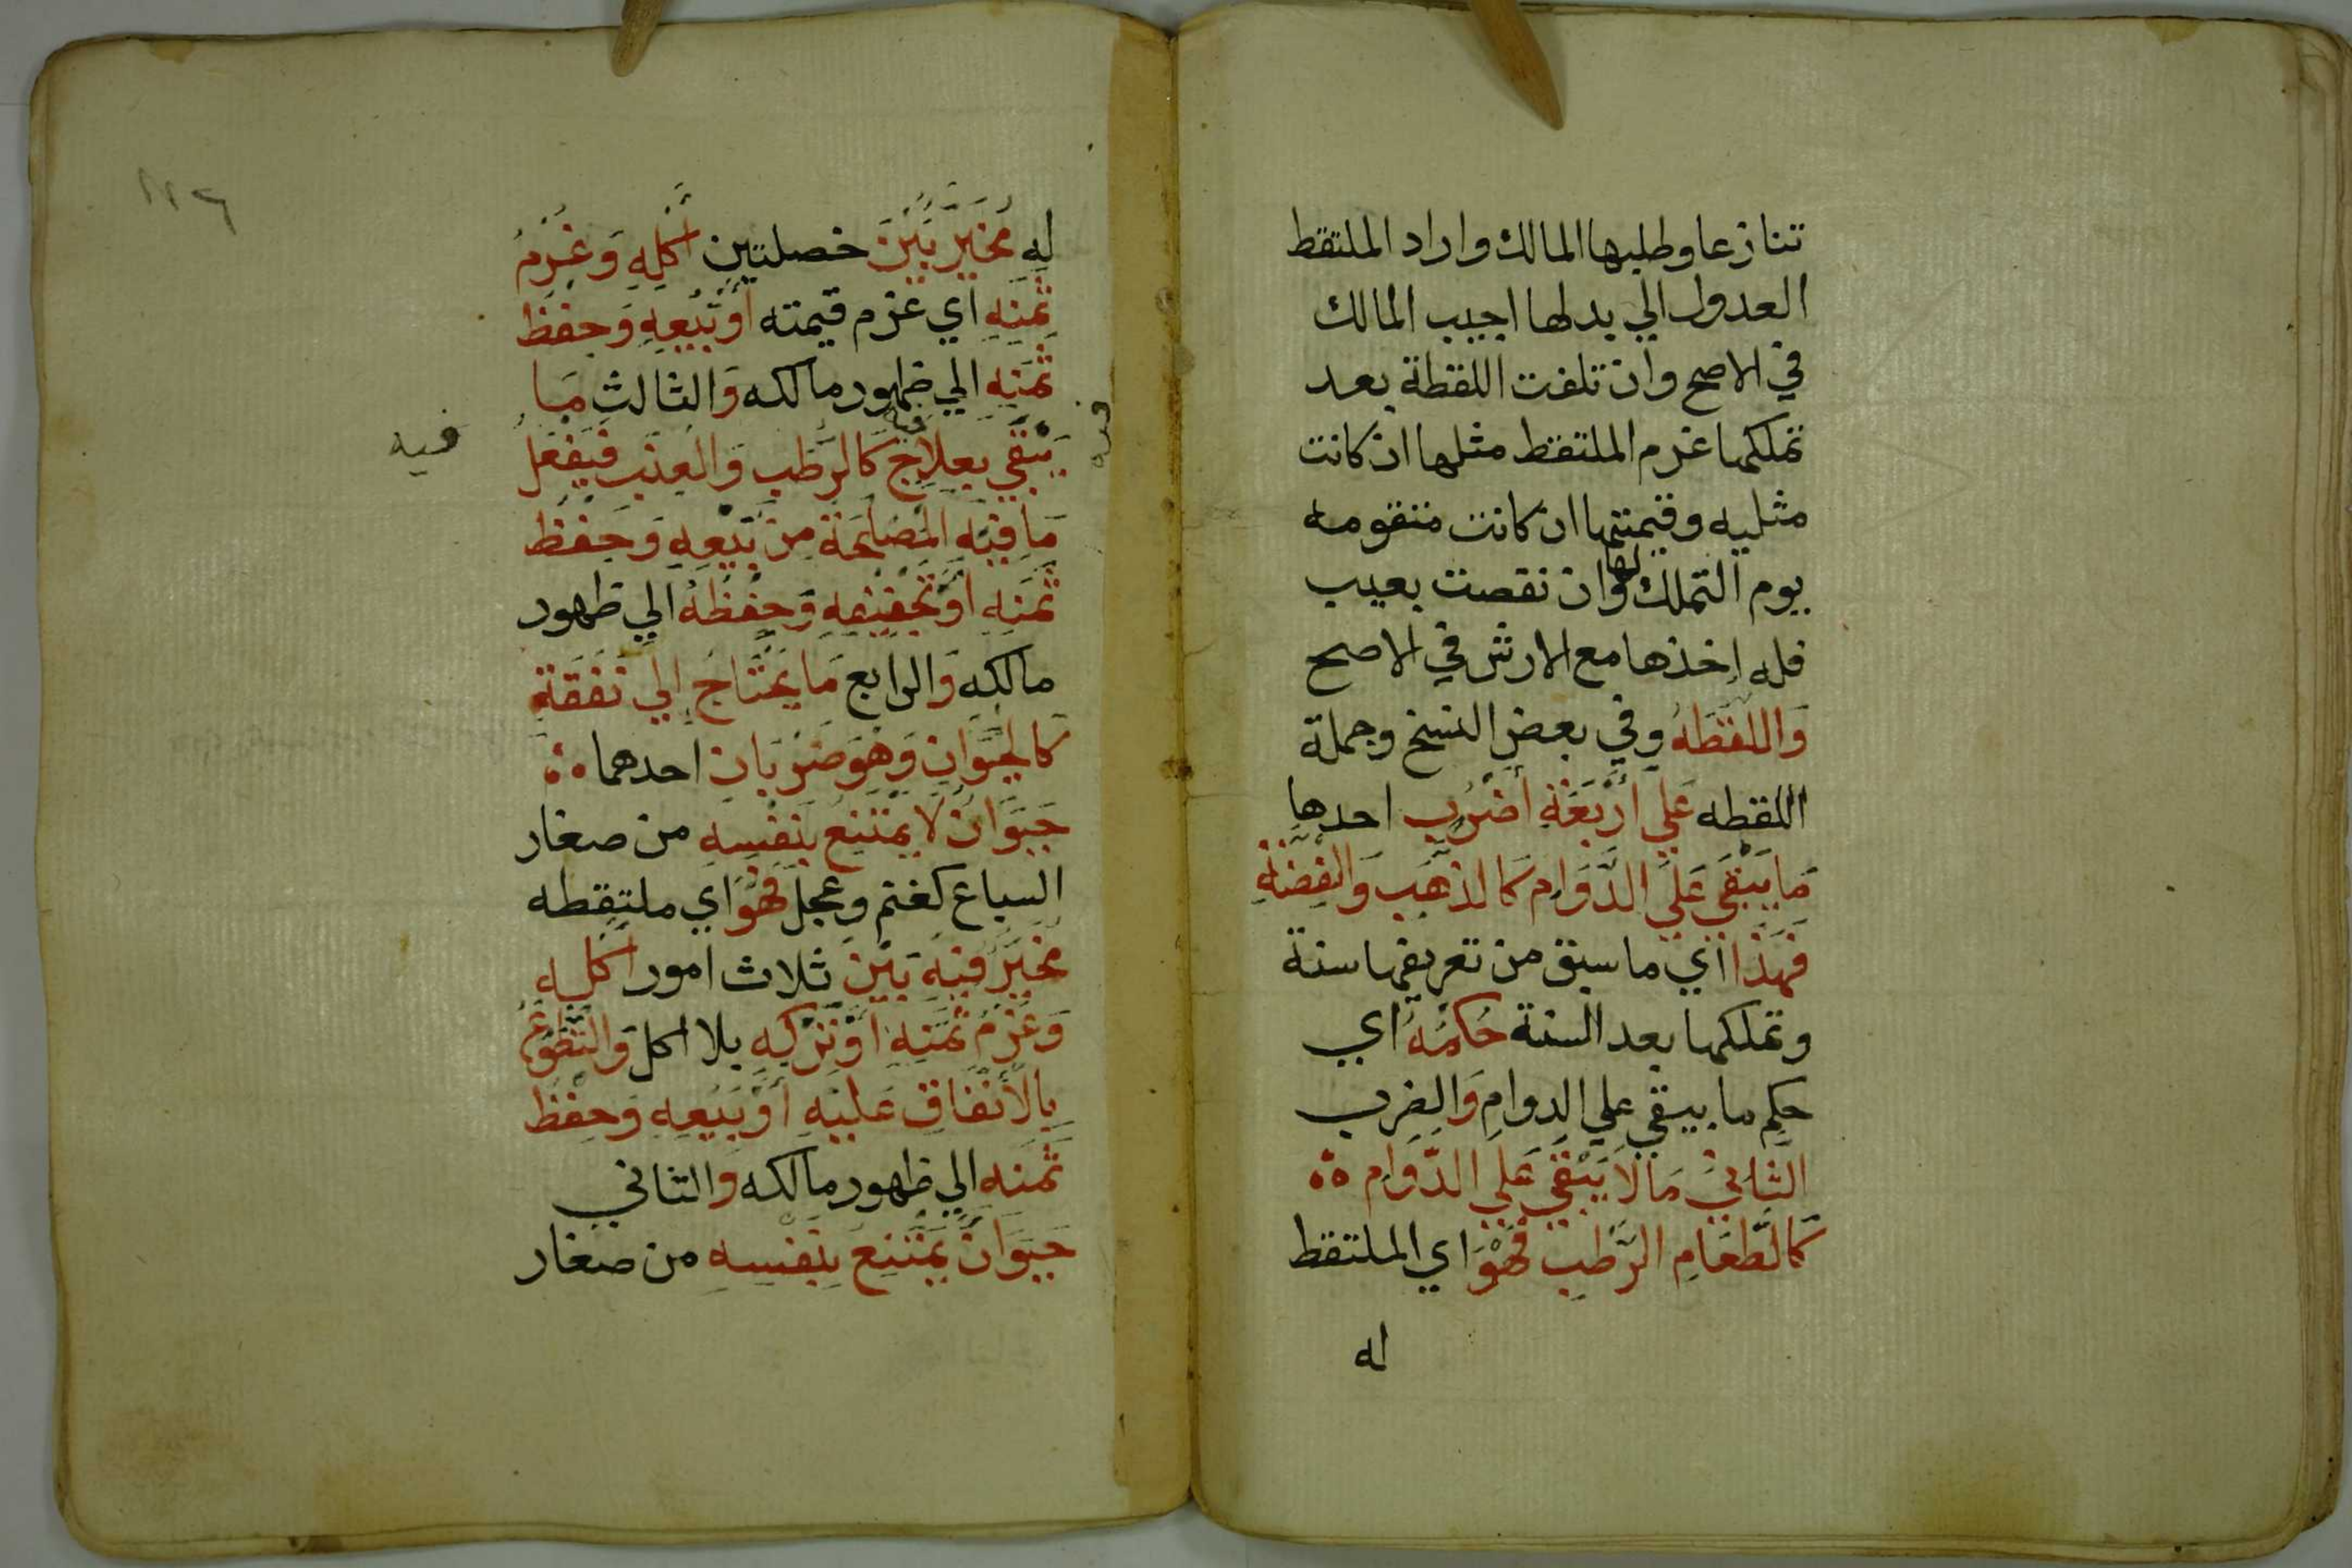 تنازعا وطلبها المالك واراد الملتقط
العدول الي بدلها اجيب المالك
في الاصح وان تلفت اللقطة بعد
تملكها غرم الملتقط مثلها ان كانت
مثليه وقيمتها ان كانت متقومه
يوم التملك لها وان نقصت بعيب
فله اخذها مع الارش في الاصح
وَاللقَطَةُ وفي بعض النسخ وجملة
اللقطه عَلي أَرْبَعَةِ أَضْرُبٍ احدها
مَا يَبْقَي عَلَي الدَّوَامِ كَالذَهَبِ وَالفِضَّةِ
فَهَذَا اي ما سبق من تعريفها سنة
وتملكها بعد السنة حُكْمُهُ اي
حكم ما يبقي علي الدوام وَالضرب
الثَّانِي مَا لَا يَبْقَي عَلي الدَّوَامِ
كَالطَّعَامِ الرَّطْبِ فَهُوَ اي الملتقط
له
١٢٤
له مُخَيَّرٌ بَيْنَ خصلتين أَكْلِهِ وَغُرْمِ
ثَمَنِهِ اي غرم قيمته أَوْ بَيْعِهِ وَحِفْظِ
ثَمَنِهِ الي ظهور مالكه وَالثالث مَا
يَبْقَي بِعِلَاجٍ فيه كَالرَّطْبِ وَالعِنَبِ فَيَفْعَلُ
فيه
فيه
مَا فِيهِ المَصْلَحَةُ مِنْ بَيْعِهِ وَحِفْظِ
ثَمَنِهِ أَوْ تَجْفِيفِهِ وَحِفْظِهِ الي ظهور
مالكه وَالرابع مَا يَحْتَاجُ إِلَي نَفَقَةٍ
كَالحَيَوَانِ وَهُوَ ضَرْبَانِ احدهما
حَيَوَانٌ لَا يَمْتَنِعُ بِنَفْسِهِ من صغار
السباع كغنم وعجل فَهُوَ اي ملتقطه
مُخَيَّرٌ فِيهِ بَيْنَ ثلاث امور أَكْلِهِ
وَغُرْمِ ثَمَنِهِ أَوْ تَرْكِهِ بلا اكل وَالتَّطَوُّعِ
بِالاِنْفَاقِ عَلَيْهِ أَوْ بَيْعِهِ وَحِفْظِ
ثَمَنِه الي ظهور مالكه وَالثاني
حَيَوَانٌ يَمْتَنِعُ بِنَفْسِهِ من صغار